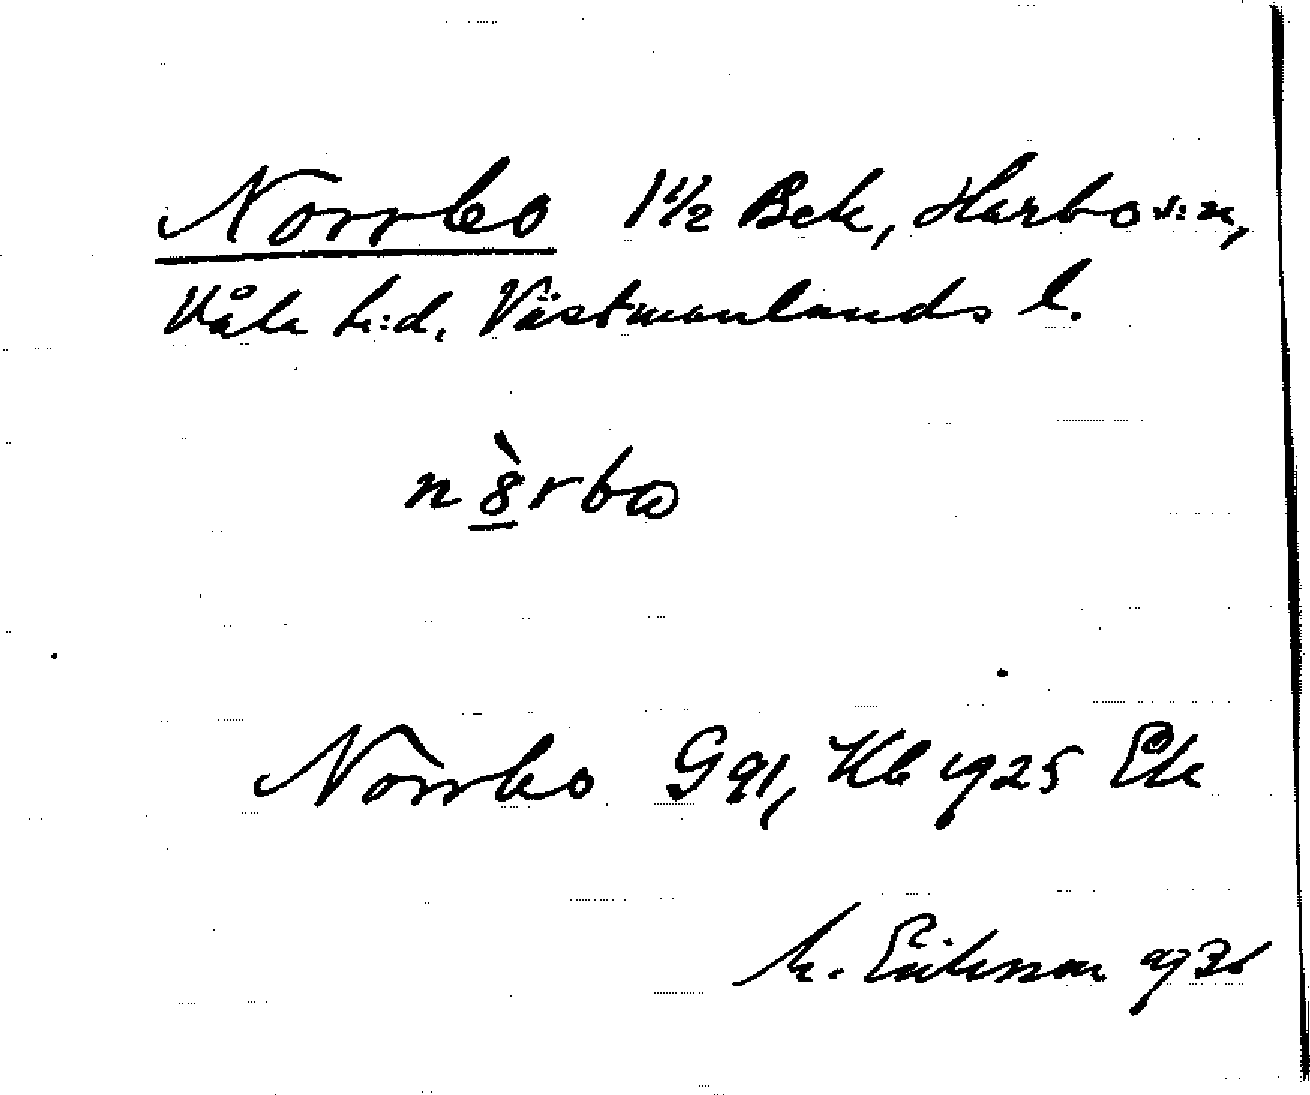 Norrbo 1 1/2 Bek, Harbo s:n,
Våla h:d, Västmanlands l.
n8̀rbω
Norrbo G 91, Kb 1925 Ek
M. Eriksson 1936